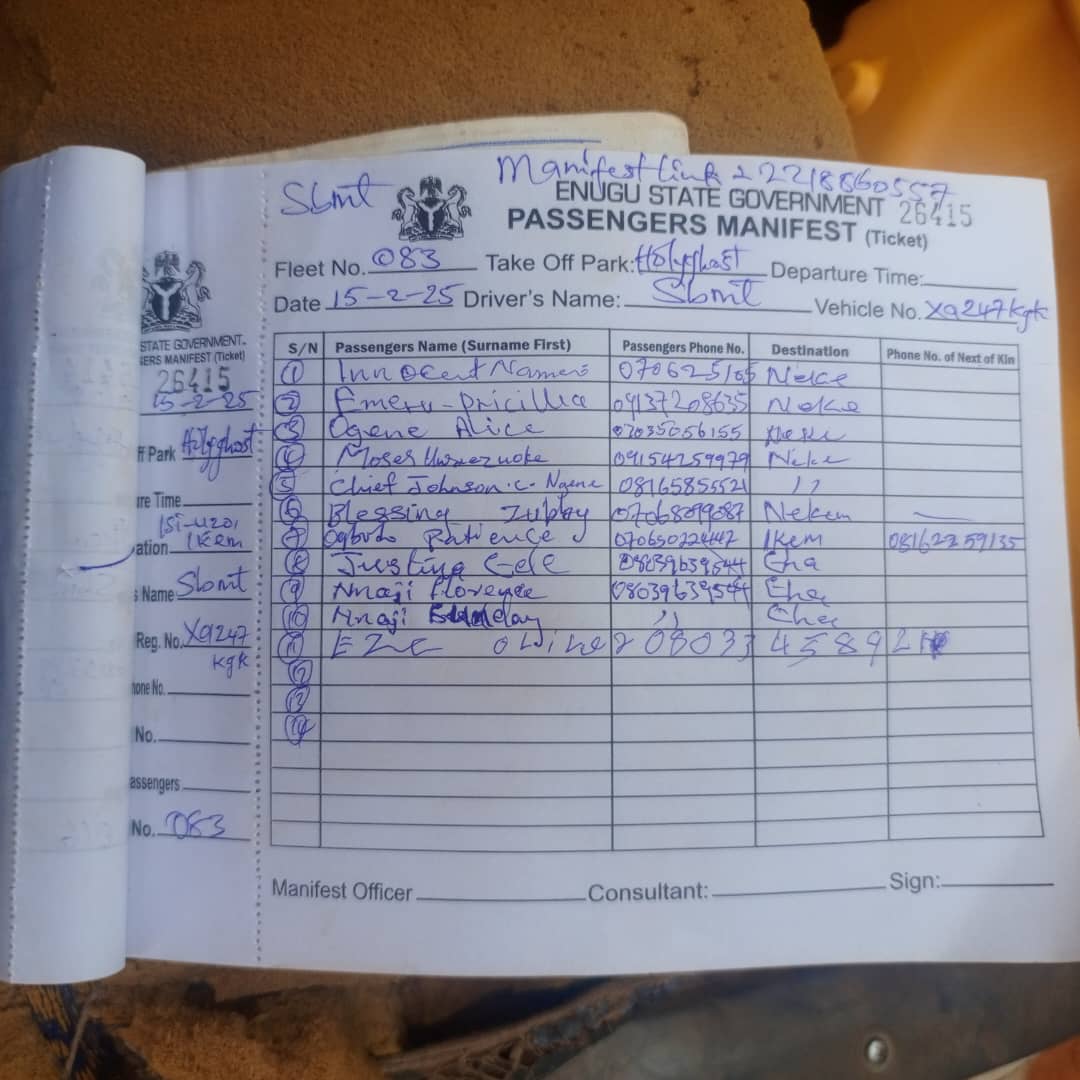 Manifest link 2218860557
Sbmt
ENUGU STATE GOVERNMENT 26415
PASSENGERS MANIFEST (Ticket)
Fleet No. 083 Take Off Park: Holyghost Departure Time:
Date 15-2-25 Driver's Name: Sbmt Vehicle No. XQ247kgk
S/N Passengers Name (Surname First) Passengers Phone No. Destination Phone No. of Next of Kin
1 Innocent Neke
2 Pricillia 09137208635 Neke
3 Ogene Alice 07035056155 Neke
4 Moses 09154259979 Neke
5 Chief Johnson .C. Ngene 08165855521 11
6 Blessing 07068099087 Nekem —
7 Ogbodo Patience 070650224442 Ikem 08162259135
8 Justina Ede 08039639544 Eha
9 Nnaji Florence 08039639544 Eha
10 Nnaji Sunday 11 Eha
11 EZE 08033458921
12
13
14
Manifest Officer Consultant: Sign:
STATE GOVERNMENT
ERS MANIFEST (Ticket)
26415
15-2-25
ff Park Holyghost
ure Time
Isi-uzo,
ation Ikem
s Name Sbmt
Reg. No. XQ247
kgk
hone No.
No.
assengers
No. 083